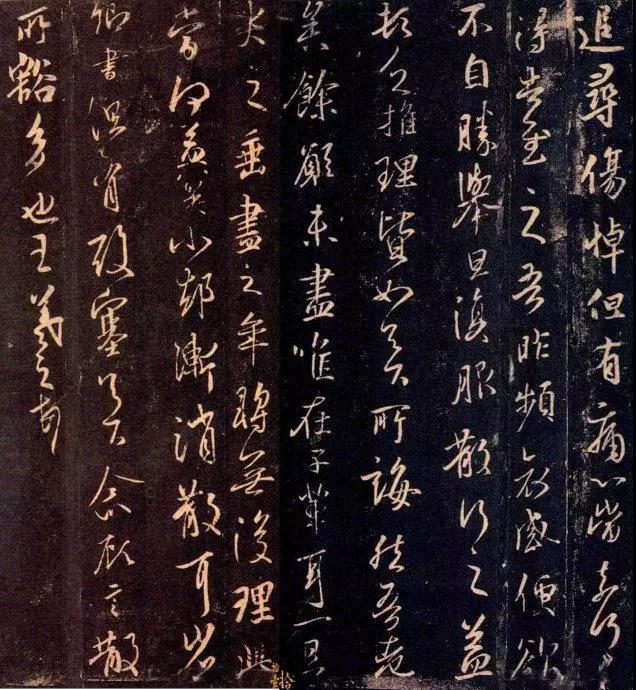 追尋傷悼但有痛心當奈何奈何
得告慰之吾昨頻哀感便欲
不自勝舉旦復服散行之益
頓乏推理皆如足下所誨然吾老
矣餘願未盡唯在子輩耳一旦
哭之垂盡之年轉無復理此
當何益冀小却漸消散耳省
卿書但有酸塞足下念故言散
所豁多也王羲之頓首